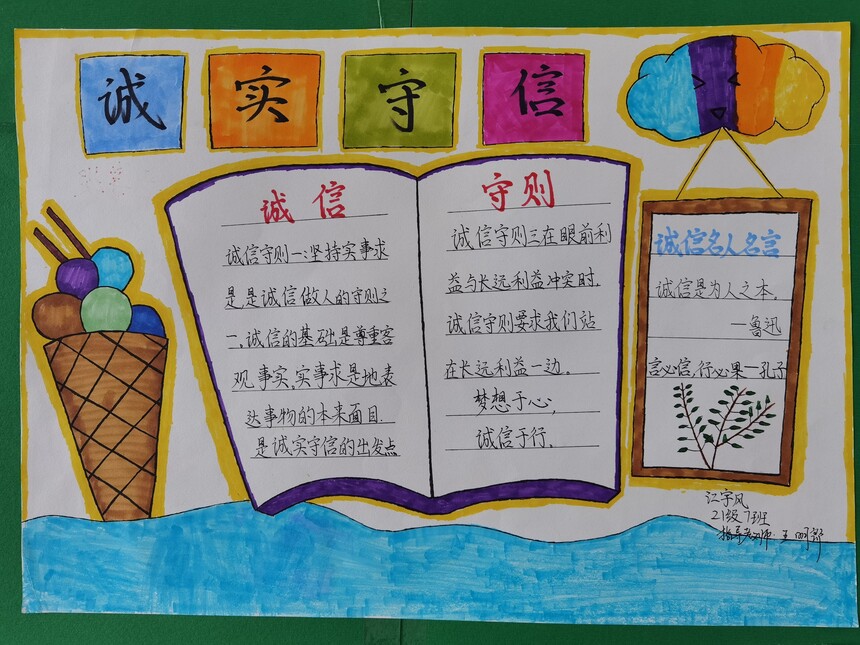 诚实守信
诚信
诚信守则一:坚持实事求
是是诚信做人的守则之
一,诚信的基础是尊重客
观事实,实事求是地表
达事物的本来面目.
是诚实守信的出发点
守则
诚信守则三在眼前利
益与长远利益冲突时.
诚信守则要求我们站
在长远利益一边。
梦想于心,
诚信于行.
诚信名人名言
诚信是为人之本.
—鲁迅
言必信,行必果—孔子
江宇风
21级7班
指导老师 王